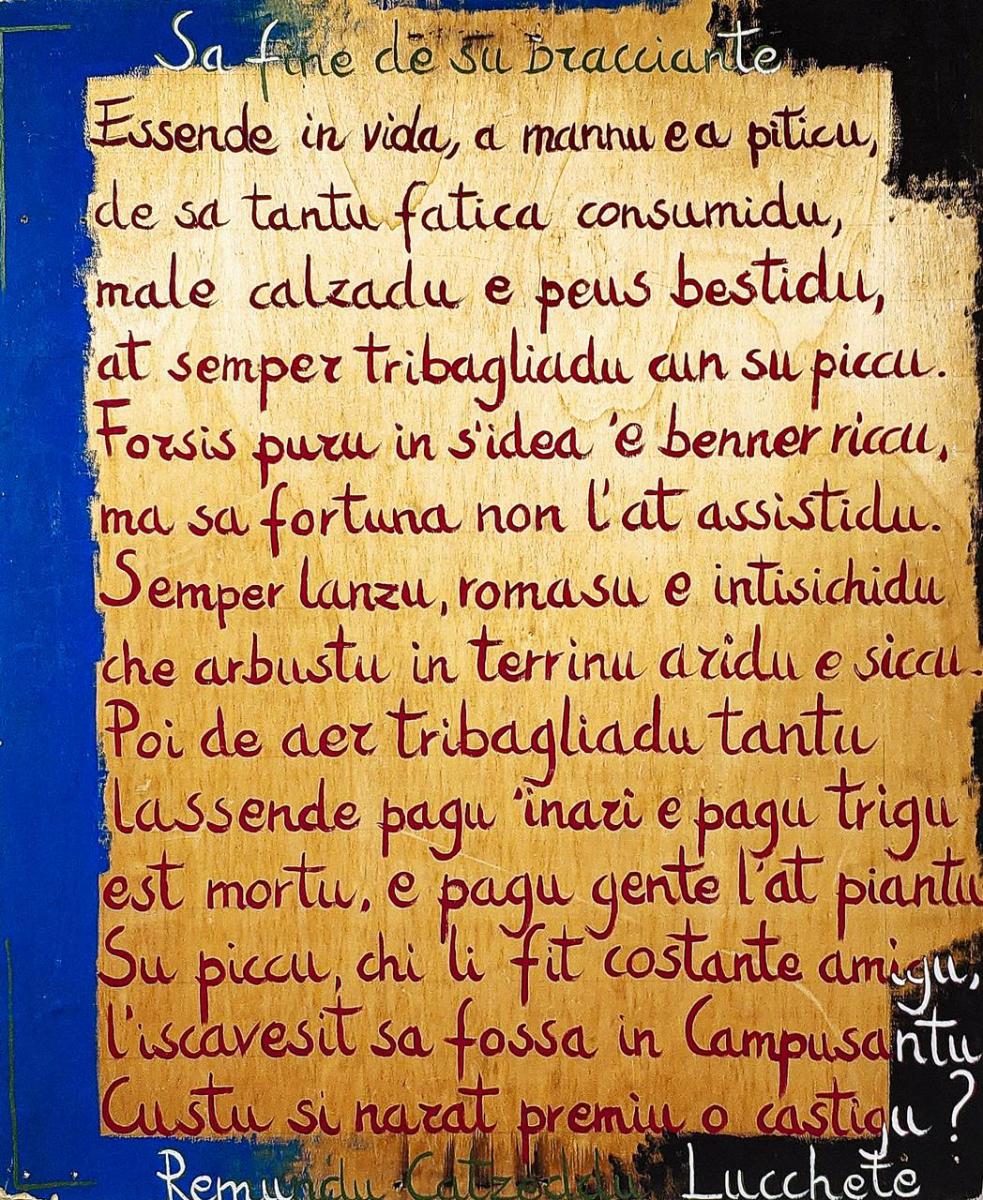 Sa fine de su bracciante
Essende in vida, a mannu e a piticu,
de sa tantu fatica consumidu,
male calzadu e peus bestidu,
at semper tribagliadu cun su piccu.
Forsis puru in s'idea 'e benner riccu,
ma sa fortuna non l'at assistidu.
Semper lanzu, romasu e intisichidu
che arbustu in terrinu aridu e siccu.
Poi de aer tribagliadu tantu
lassende pagu 'inari e pagu trigu
est mortu, e pagu gente l'at piantu
Su piccu, chi li fit costante amigu,
l'iscavesit sa fossa in Campusantu
Custu si narat premiu o castigu?
Remundu Catzeddu Lucchete